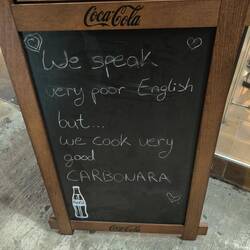 Coca-Cola
We speak
very poor English
but...
we cook very
good
CARBONARA
Coca-Cola